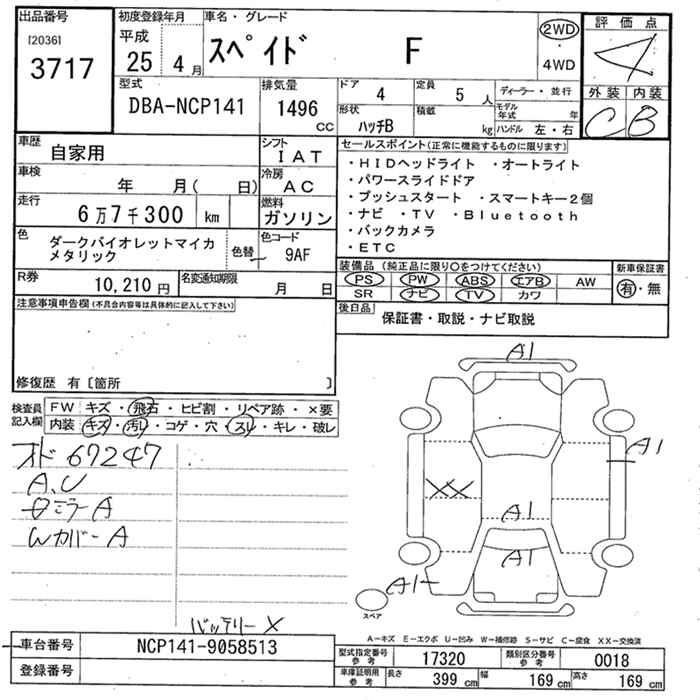 出品番号
[2036]
3717
初度登録年月
平成
25 4 月
車名・グレード
スペイド F
2WD
・
4WD
評価点
4
外装 内装
C B
型式
DBA-NCP141
排気量
1496
CC
ドア
4
定員
5 人
形状
ハッチB
積載
kg
ディーラー・並行
モデル
年式 年
ハンドル 左・右
車歴
自家用
シフト
IAT
車検
年 月( 日)
冷房
AC
走行
6万7千300 km
燃料
ガソリン
色
ダークバイオレットマイカ
メタリック
色替
色コード
9AF
R券
10,210 円
名変通知期限
月 日
セールスポイント(正常に機能するものに限ります)
・HIDヘッドライト ・オートライト
・パワースライドドア
・プッシュスタート ・スマートキー2個
・ナビ ・TV ・Bluetooth
・バックカメラ
・ETC
装備品(純正品に限り○をつけてください)
新車保証書
PS PW ABS エアB AW
SR ナビ TV カワ
有・無
後日品
保証書・取説・ナビ取説
注意事項申告欄(不具合内容等は具体的に記入して下さい)
修復歴 有〔箇所 〕
検査員
記入欄
FW キズ・飛石・ヒビ割・リペア跡・×要
内装 キズ・汚レ・コゲ・穴・スレ・キレ・破レ
オド 67247
A.U
ミラーA
Wカバー A
バッテリー×
A1
A1
XX
A1
A1
A1
スペア
A-キズ E-エクボ U-凹み W-補修跡 S-サビ C-腐食 XX-交換済
車台番号
NCP141-9058513
登録番号
型式指定番号
参考
17320
類別区分番号
参考
0018
車庫証明用
参考
長さ
399 cm
幅
169 cm
高さ
169 cm